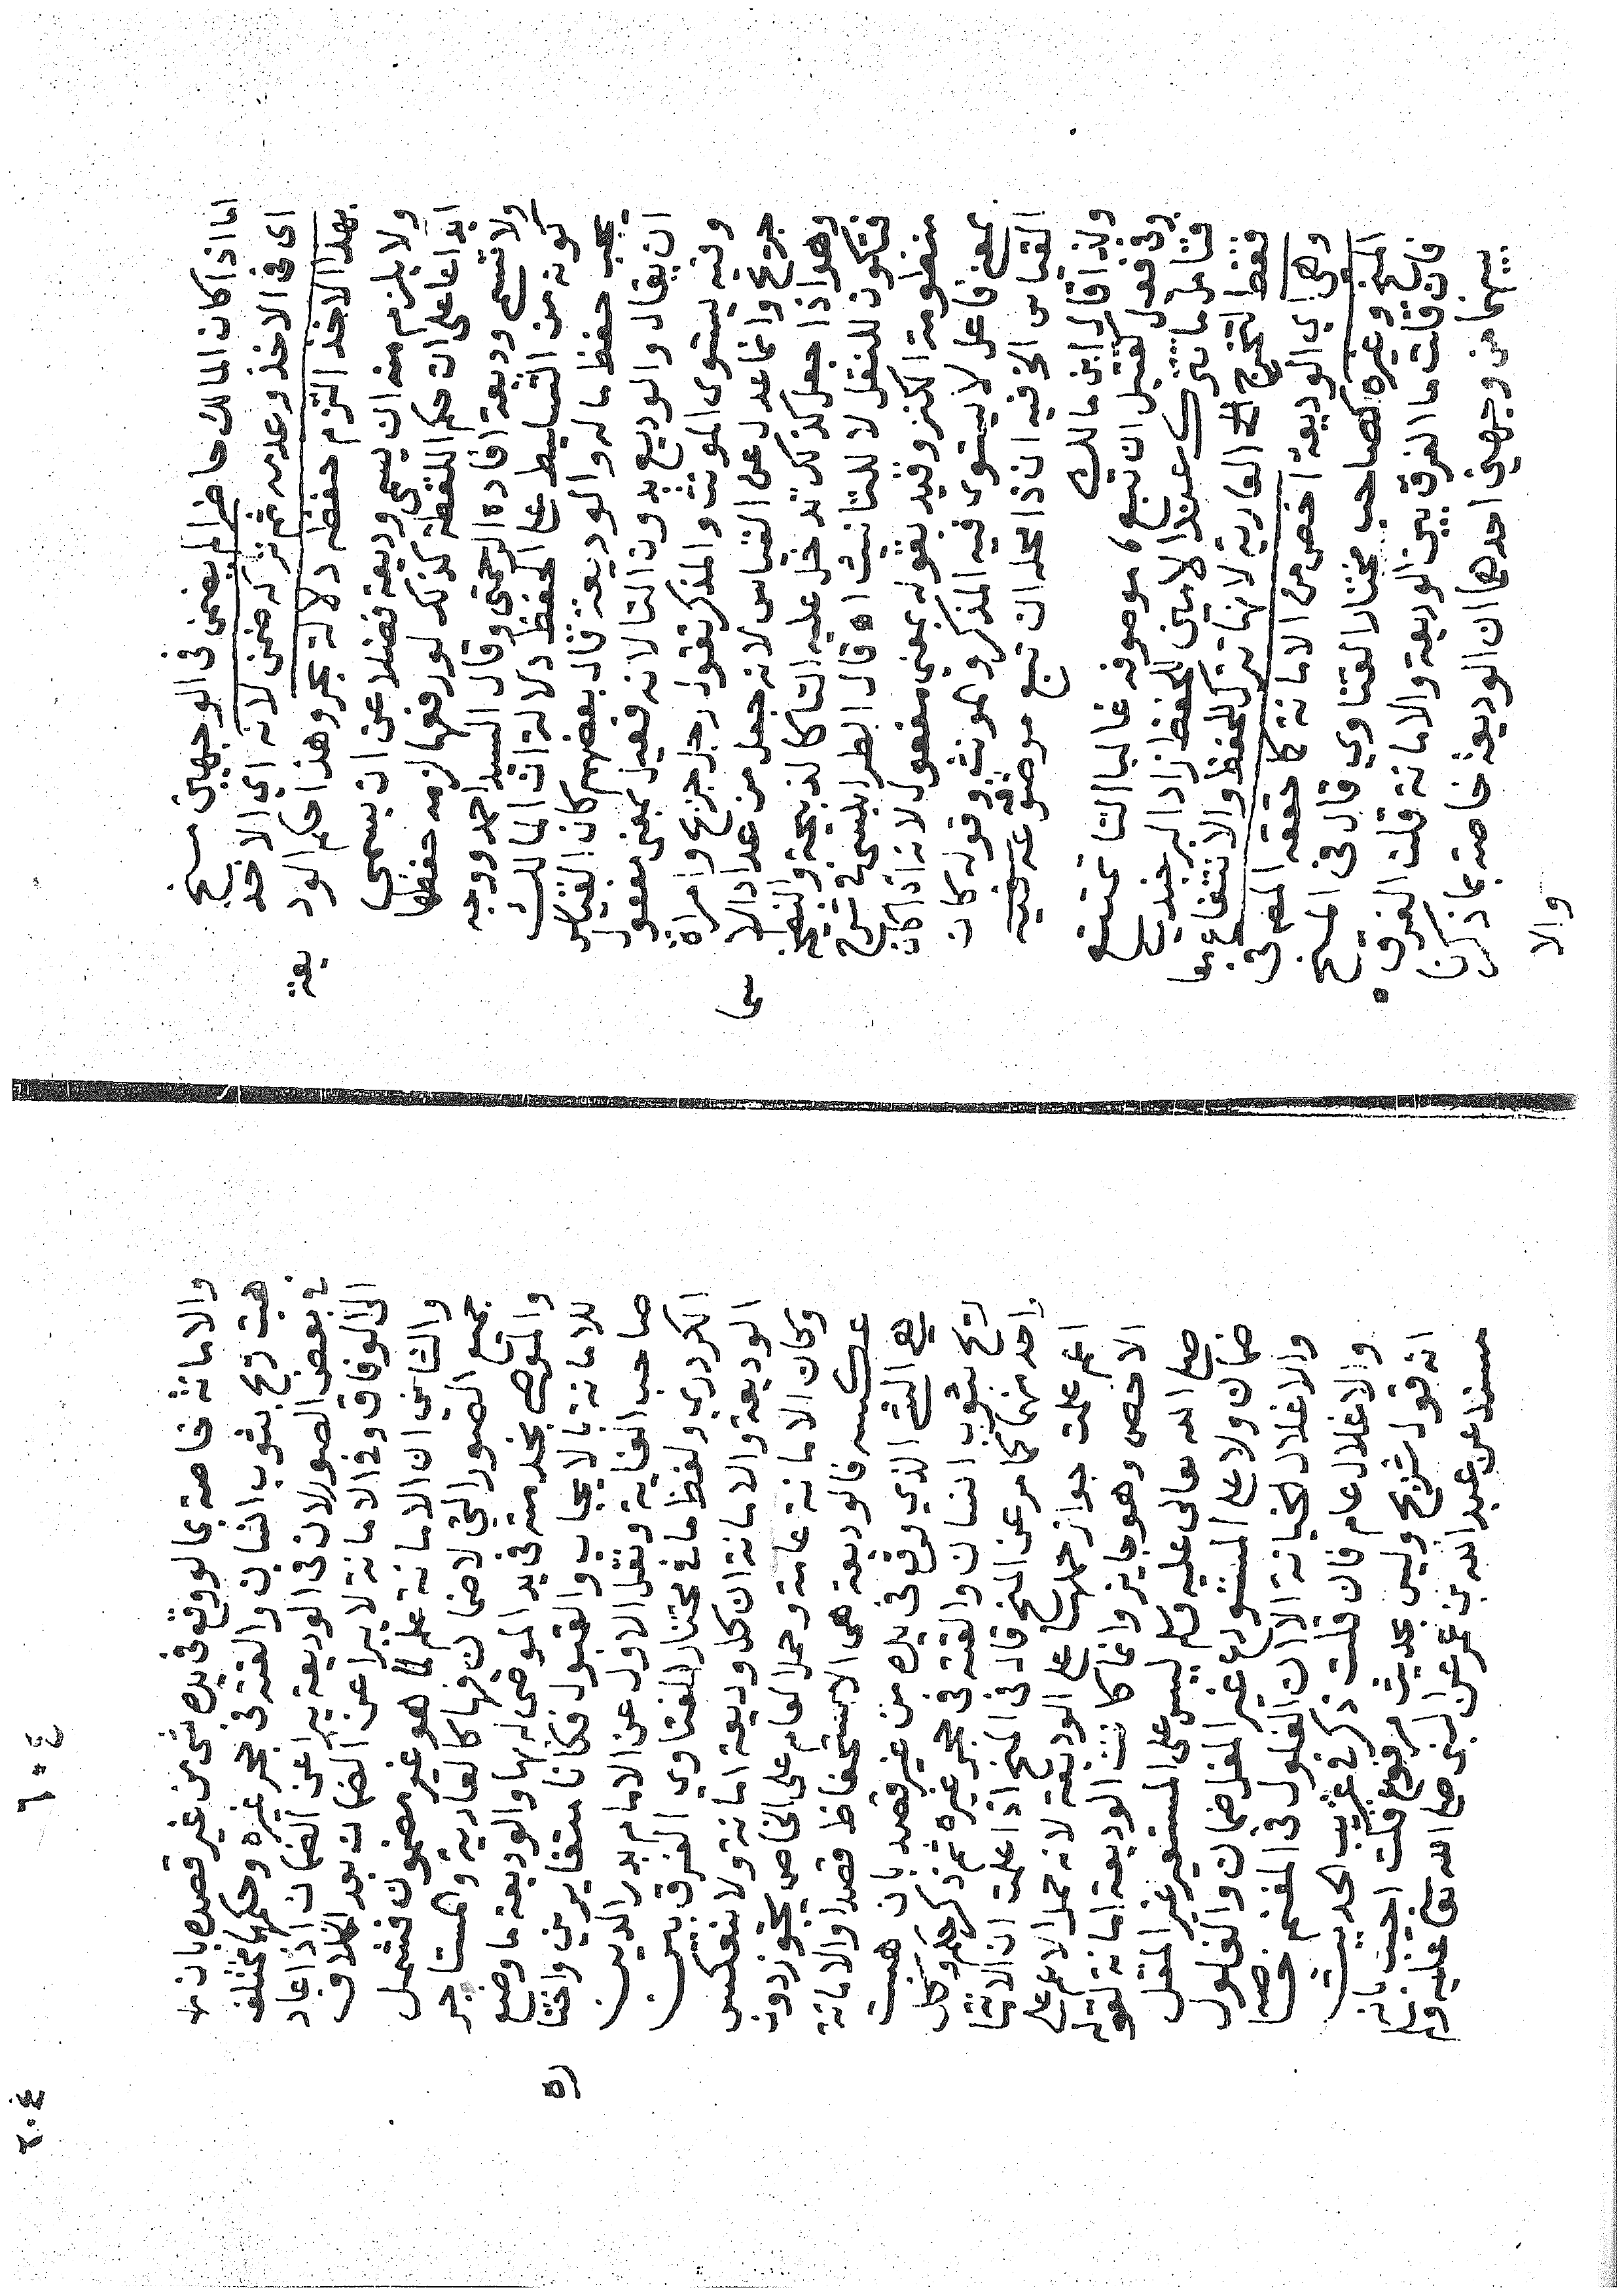 اما اذا كان المالك حاضرا لم يضمن في الوجهين سح
اى في الاخذ وعدمه ثم تركه ضمن لانه اى الاخد
بهذا الاخذ التزم حفظه دلالة بحر وهذا حكم الود
يعة
ولا يلزم منه ان يسمى وديعة فضلا عن ان يسمى
ايداعا على ان حكم اللقطة كذلك لو رفعها لزمه حفظها
ولا تسمى وديعة افاده الرحمتى وقال السيد احمد ووجه
كونه من التسليط على الحفظ دلالة ان المالك
يحب حفظ ماله والوديعة قال بعضهم كان القياس
ان يقال والوديع بدون التا لانه فعيل بمعنى مفعول
وفيه يستوى المونث والمذكر تقول رجل جريح وامراة
جريح وانما عدل عن القياس لانه جعل من عداد الا
سما
وهو اذا جعل كذلك تدخل عليه التا كالذبيحة والنطيحة
فتكون للنقل لا للتانيث اه قال الطرابلسى في شرح
منظومة الكنز وقيد بقوله بمعنى مفعول لانه اذا كان
بمعنى فاعل لا يستوى فيه المذكر والمونث وقوله كان
القياس الخ فيه ان ذا محله ان تبع موصوفه
ولذا قال ابن مالك
ومن فعيل كقتيل ان تبع ، موصوفه غالبا التا تمتنع
فتامل ما تترك عند الامين للحفظ زاد البرجندي
فقط لتخرج العارية لانها تترك للحفظ والانتفاع بها
وهي اي الوديعة اخص من الامانة كما حققه المص في
المنح وغيره كصاحب مختار الفتاوي قال في المنح
فان قلت ما الفرق بين الوديعة والامانة قلت الفرق
بينهما من وجهين احدهما ان الوديعة خاصة بما ذكرنا
والا
والامانة خاصة بما لو وقع في يده شى من غير قصده بان
هبت ريح بثوب انسان والقته في حجر غيره وحكمهما مختلف
في بعض الصور لان في الوديعة يبرا عن الضمان اذا عاد
الى الوفاق وفي الامانة لا يبرا عن الضمان بعد الخلاف
والثاني ان الامانة علم لما هو غير مضمون فشمل
جميع الصور التي لا ضمان فيها كالعارية والمستاجر
والموصى بخدمته في يد الموصى له بها والوديعة ما وضع
للامانة بالايجاب والقبول فكانا متغايرين واختا
ره
صاحب النهاية ونقل الاول عن الامام بدر الدين
الكردري ولفظ ما في مختار الفتاوي الفرق بين
الوديعة والامانة ان كل وديعة امانة ولا ينعكس
وكان الامانة عامة وحمل العام على الخاص يجوز دون
عكسه فالوديعة هى الاستحفاظ قصدا والامانة
هي الشى الذي وقع في يده من غير قصد بان هبت
ريح بثوب انسان والقته في حجر غيره ثم ذكر حكم كل
واحد منهما كما مر عن المنح قال في المنح اذا علمت ان الامانة
اعم علمت جواز حملها على الوديعة لانه حمل الاعم على
الاخص وهو جايز وانما كانت الوديعة امانة لقوله
صلى الله تعالى عليه وسلم ليس على المستعير غير المغل
ضمان ولا على المستودع غير المغل ضمان والغلول
والاغلال الخيانة الا ان الغلول في المغنم خاصة
والاغلال عام فان قلت ذكر في غريب الحديث
انه قول شريح وليس بحديث مرفوع قلت اجيب بانه
مسند عن عبد الله بن عمر عن النبي صلى الله تعالى عليه وسلم
٢٠٤